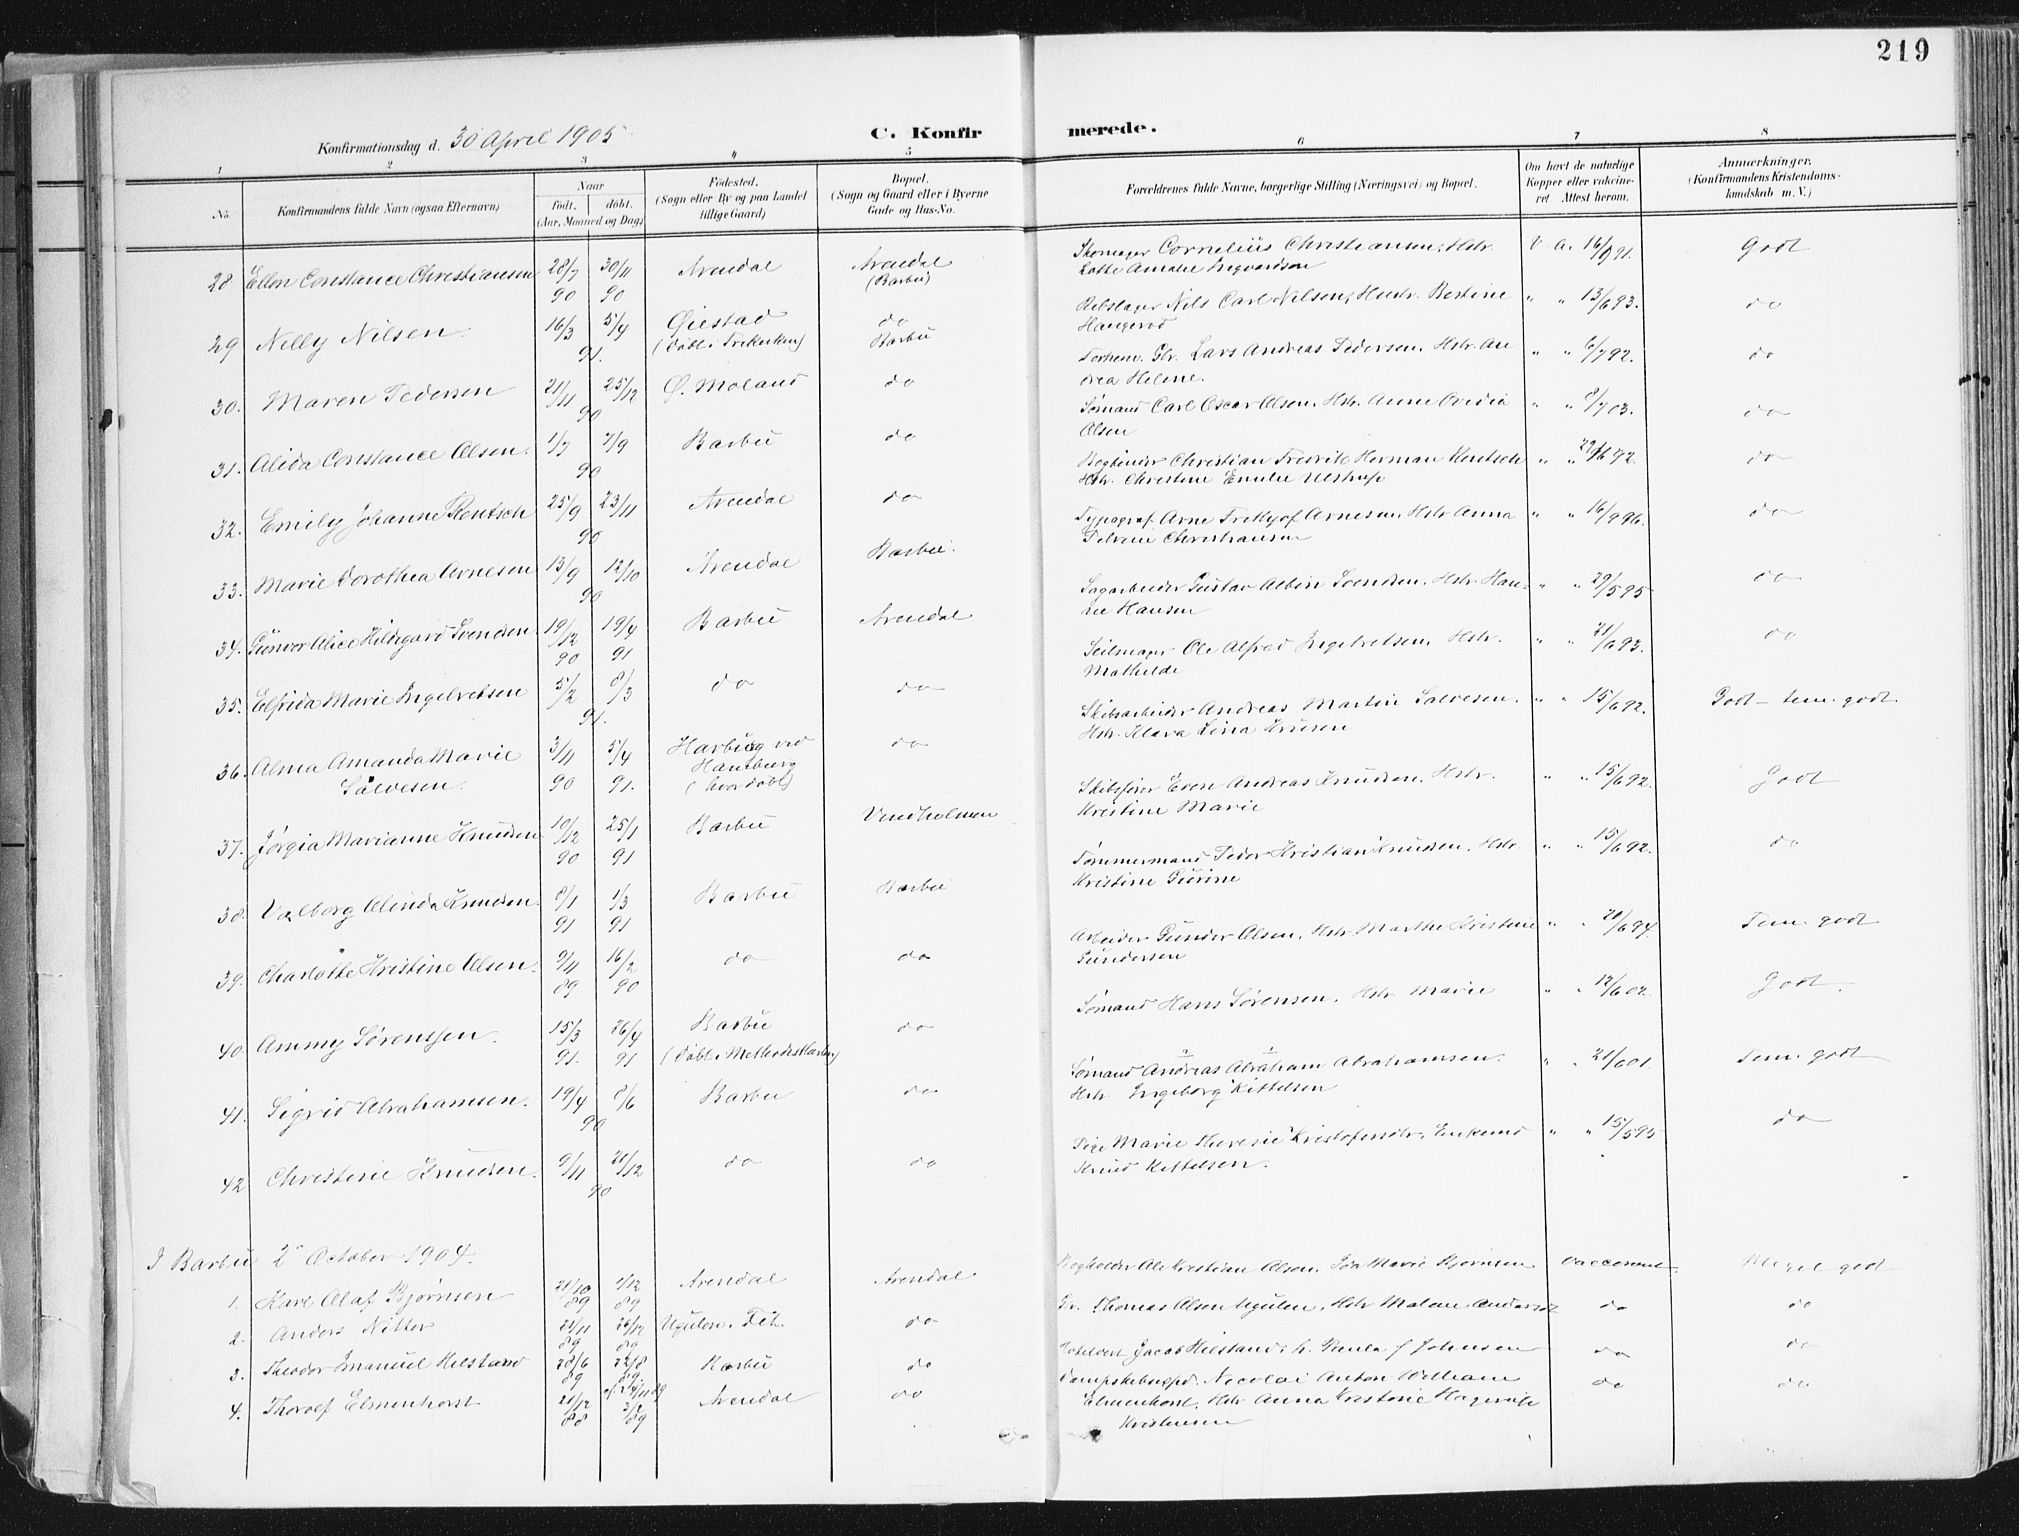 219
Konfirmationsdag d. 30 April 1905
C. Konfirmerede.
1 2 3 4 5 6 7 8
No.
Konfirmandens fulde Navn (ogsaa Efternavn)
Naar
født. døbt.
(Aar, Maaned og Dag)
Fødested.
(Sogn eller By og paa Landet
tillige Gaard)
Bopæl.
(Sogn og Gaard eller i Byerne
Gade og Hus-No.
Forældrenes fulde Navne, borgerlige Stilling (Næringsvei) og Bopæl.
Om havt de naturlige
Kopper eller vakcine-
ret. Attest herom.
Anmærkninger.
(Konfirmandens Kristendoms-
kundskab m. V.)
28 Ellen Constance Christiansen 28/7 90 30/11 90 Arendal Arendal (Barbu) Skomager Cornelius Christiansen, Hstr. Lotte Amalie Ingvardsen V. a. 16/9 91. Godt
29 Nelly Nilsen. 16/3 5/4 91. Øiestad (døbt i Frikirken) do Barbu Rebslager Nils Carl Nilsen, Hustr. Bertine Haugerød " " 13/6 93. do
30. Maren Pedersen 21/11 25/12 90 Ø. Moland do Forhenv. Gbr. Lars Andreas Pedersen, Hstr. Andrea Helene. " " 6/7 92. do
31. Alida Constance Olsen. 1/7 7/9 90 Barbu do Sømand Carl Oscar Olsen, Hstr. Anne Ovidia Olsen " " 8/7 03. do
32. Emily Johanne Rentsch 25/9 23/11 90 Arendal do Bogbinder Christian Fredrik Herman Rentsch Hstr. Christine Emilie Ulstrup " " 29/6 92. do
33. Marie Dorothea Arnesen 13/9 12/10 90 Arendal Barbu. Typograf Arne Frithjof Arnesen, Hstr Anna Petrine Christiansen " " 16/9 96. do
34. Gunvor Alice Hildegard Svendsen. 19/12 90 19/4 91 Barbu Arendal Sagarbeider Gustav Albin Svendsen, Hstr. Hanne Hansen " " 29/5 95 do
35. Elfrida Marie Ingebretsen 5/2 8/3 91. do do Seilmager Ole Alfred Ingebretsen, Hstr. Mathilde " " 21/6 93. do
36. Alma Amanda Marie Salvesen. 3/11 90 5/4 91. Harburg ved Hamburg (hvor døbt) do Skibsarbeider Andreas Martin Salvesen. Hstr. Klara Lina Krusen " " 15/6 92. Godt - tem. godt.
37. Jørgia Marianne Knudsen 10/12 90 25/1 91 Barbu Vindholmen Skibsfører Even Andreas Knudsen, Hstr. Kristine Marie " " 15/6 92. Godt
38. Valborg Olinda Knudsen. 8/1 91 1/3 91 Barbu Barbu Tømmermand Peder Kristian Knudsen. Hstr. Kristine Gurine " " 15/6 92. do
39. Charlotte Kristine Olsen. 9/11 89 16/2 90 do do Arbeider Gunder Olsen, Hstr Marthe Kristine Gundersen " " 20/6 94. Tem. godt
40. Ammy Sørensen. 15/3 91. 26/4 91 Barbu (døbt i Methodistkirken) do Sømand Hans Sørensen, Hstr Marie " " 12/6 02. Godt.
41. Sigrid Abrahamsen. 19/4 8/6 90 Barbu do Sømand Andreas Abraham Abrahamsen. Hstr. Ingeborg Kittelsen " " 21/6 01. Tem. godt
42 Christine Knudsen. 9/11 21/12 90 do do Pige Marie Theresie Kristofersdtr, Enkemd Knud Kittelsen. " " 15/5 95 do
I Barbu 2 October 1904.
1. Karl Olaf Bjørnsen 21/10 89 1/12 89 Arendal Arendal Bogholder Ole Kristian Olsen, Marie Bjørnsen vaccineret. Meget godt
2. Anders Nitter 21/11 89 26/12 89 Ugulen. do Gr. Thomas Olsen Ugulen, Hstr Malene Andersd. do do
3. Theodor Emanuel Hilstand 28/6 89 Barbu do Jacob Hilstand, h. f Johnsen do do
4. Thorolf Elmenhorst 21/12 88 3/2 89 Arendal do Dampskibsexpd. Nicolai Anton William Elmenhorst, Hstr Anna Kristensen do do